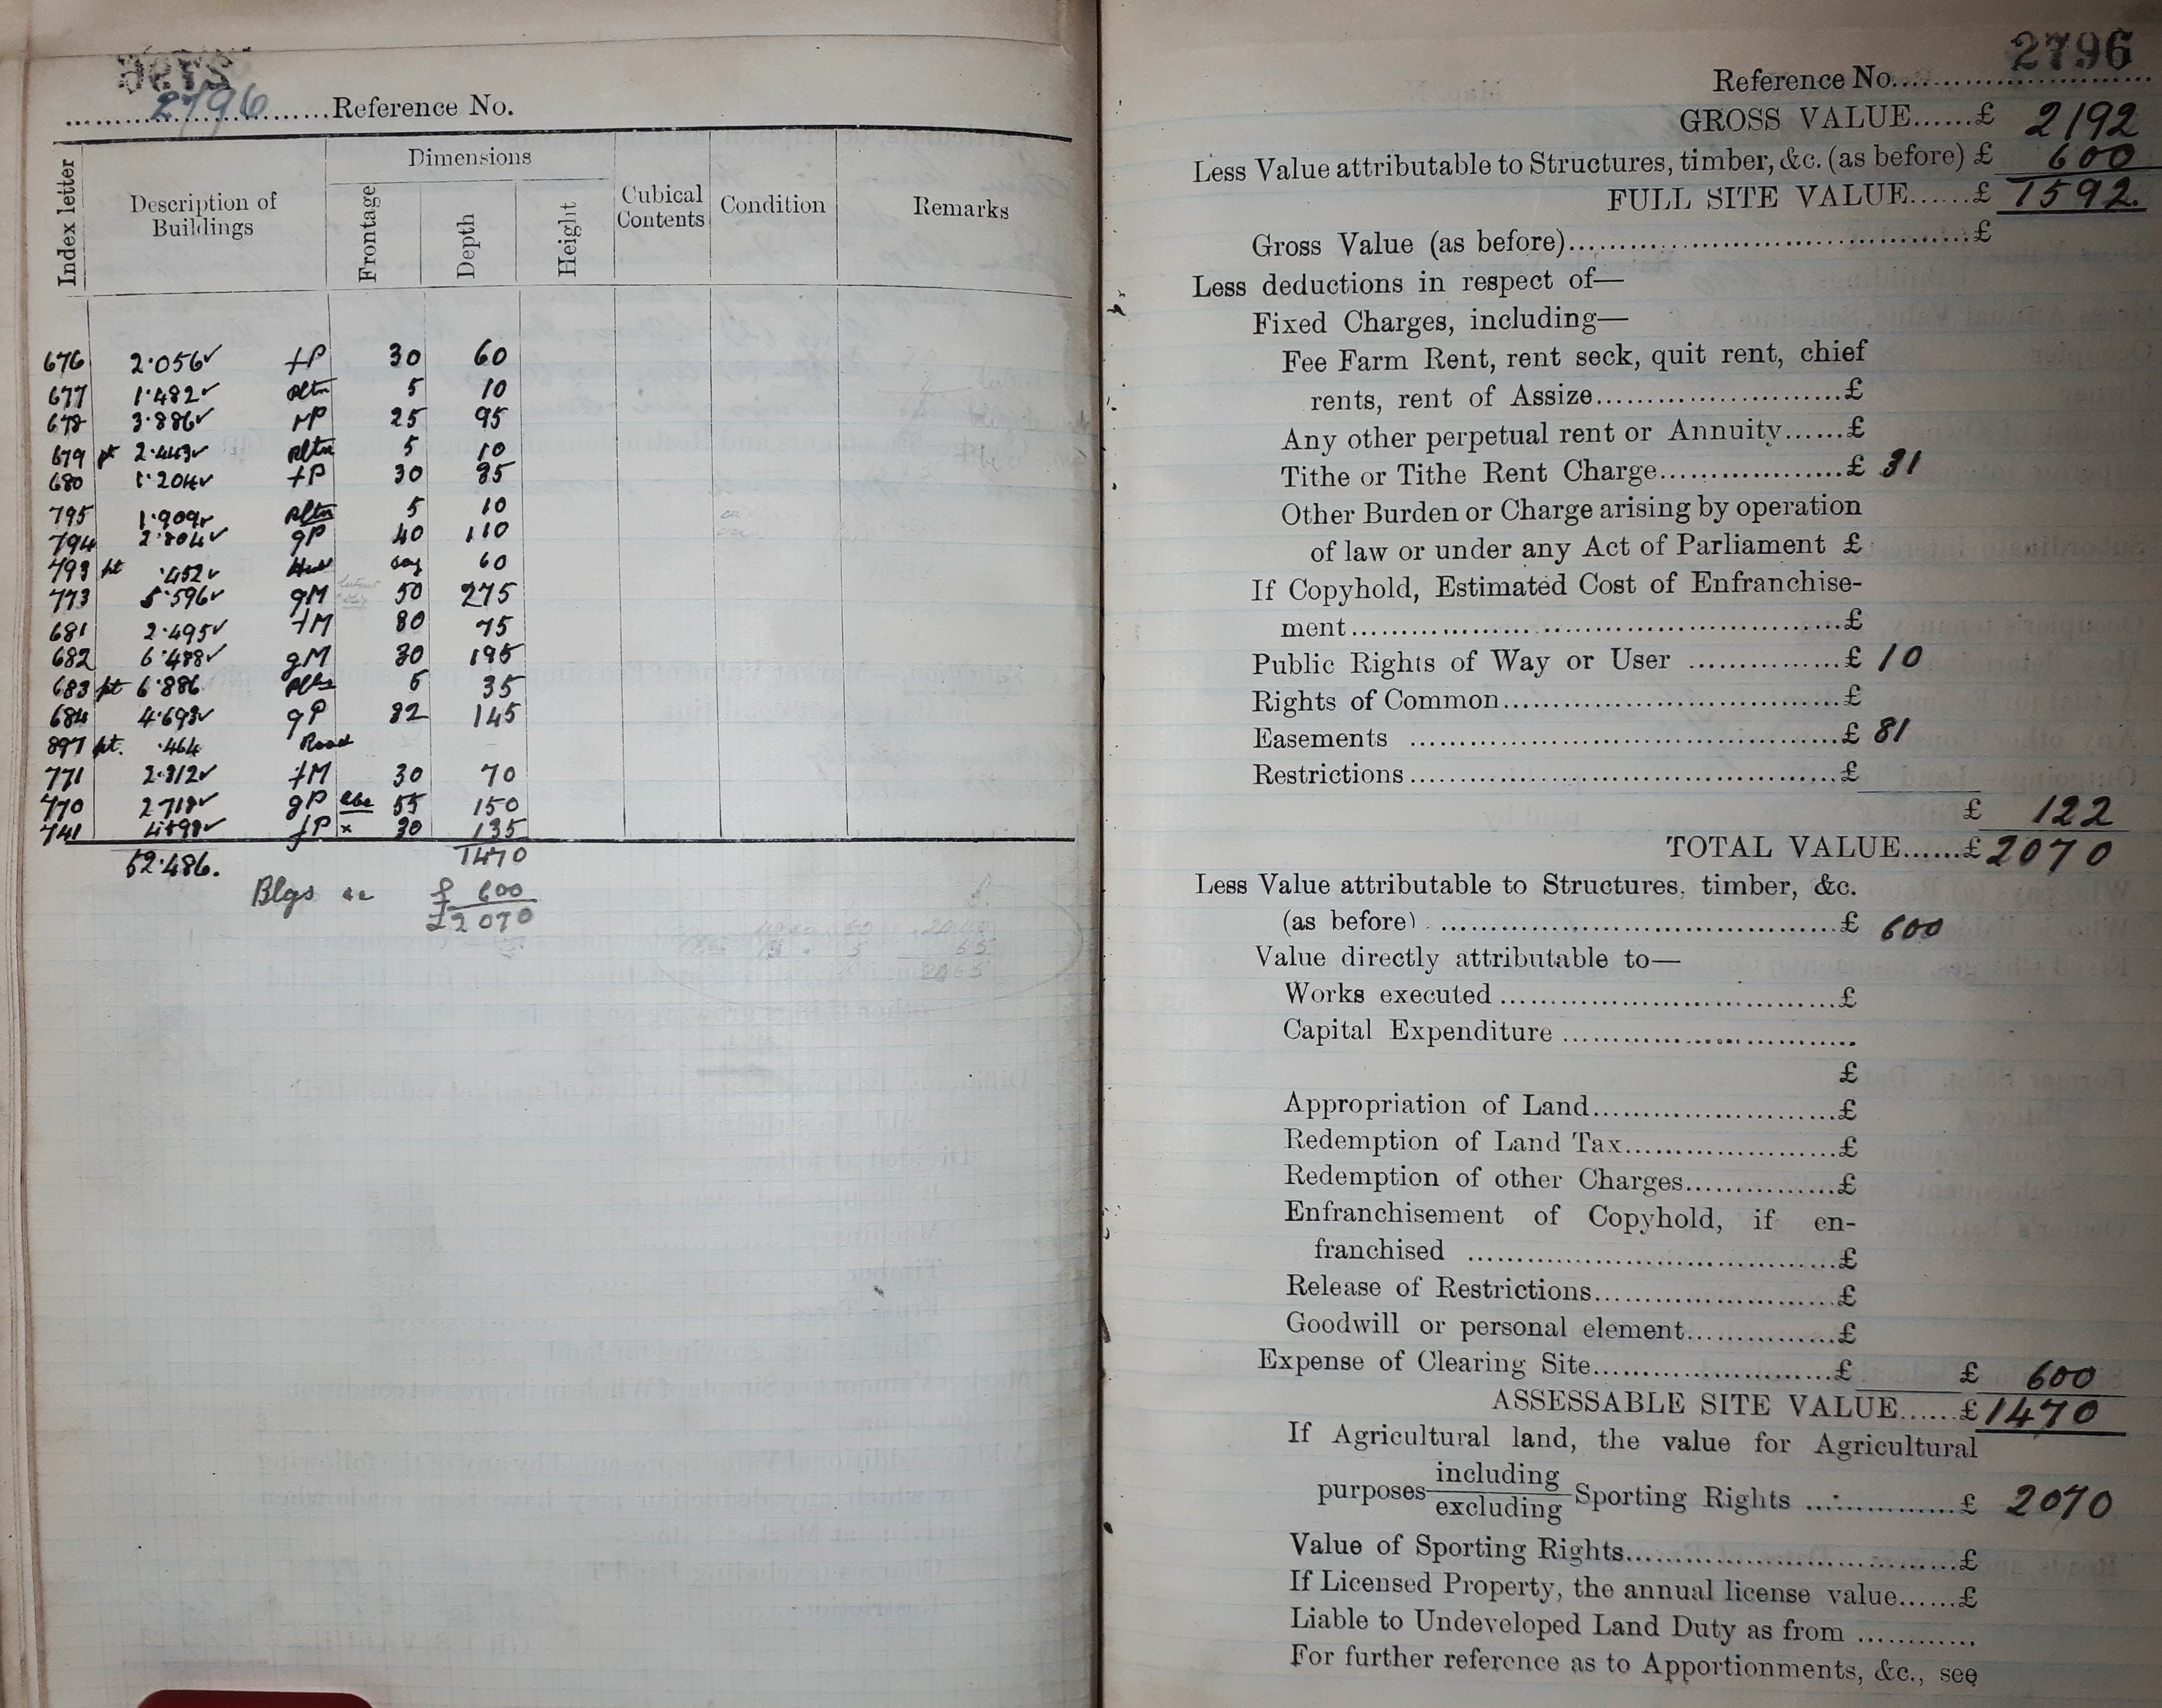 2796
2796 Reference No.
Index letter
Description of Buildings
Dimensions
Frontage
Depth
Height
Cubical Contents
Condition
Remarks
676 2·056✓ fP 30 60
677 1·482✓ Pltn 5 10
678 3·886✓ 25 95
679 pt 2·443✓ Pltn 5 10
680 1·204✓ fP 30 35
795 1·909✓ Pltn 5 10
794 2·804✓ gP 40 110
793 pt ·452✓ say 60
773 5·596✓ gM 50 275
681 2·495✓ fM 30 75
682 6·488✓ gM 30 195
683 pt 6·886 5 35
684 4·693✓ gP 32 145
897 pt. ·464 Road
771 2·312✓ fM 30 70
770 2718✓ gP 55 150
741 4·598✓ fP × 30 135
52·486. 1470
Blgs &c £ 600
£2070
2796
Reference No.
GROSS VALUE......£ 2192
Less Value attributable to Structures, timber, &c. (as before) £ 600
FULL SITE VALUE......£ 1592.
Gross Value (as before)......£
Less deductions in respect of—
Fixed Charges, including—
Fee Farm Rent, rent seck, quit rent, chief
rents, rent of Assize......£
Any other perpetual rent or Annuity......£
Tithe or Tithe Rent Charge......£ 31
Other Burden or Charge arising by operation
of law or under any Act of Parliament £
If Copyhold, Estimated Cost of Enfranchise-
ment......£
Public Rights of Way or User ......£ 10
Rights of Common......£
Easements ......£ 81
Restrictions......£
£ 122
TOTAL VALUE......£ 2070
Less Value attributable to Structures, timber, &c.
(as before) ......£ 600
Value directly attributable to—
Works executed ......£
Capital Expenditure ......
£
Appropriation of Land......£
Redemption of Land Tax......£
Redemption of other Charges......£
Enfranchisement of Copyhold, if en-
franchised ......£
Release of Restrictions......£
Goodwill or personal element......£
Expense of Clearing Site......£ £ 600
ASSESSABLE SITE VALUE......£ 1470
If Agricultural land, the value for Agricultural
purposes including
excluding Sporting Rights ......£ 2070
Value of Sporting Rights......£
If Licensed Property, the annual license value......£
Liable to Undeveloped Land Duty as from ............
For further reference as to Apportionments, &c., see